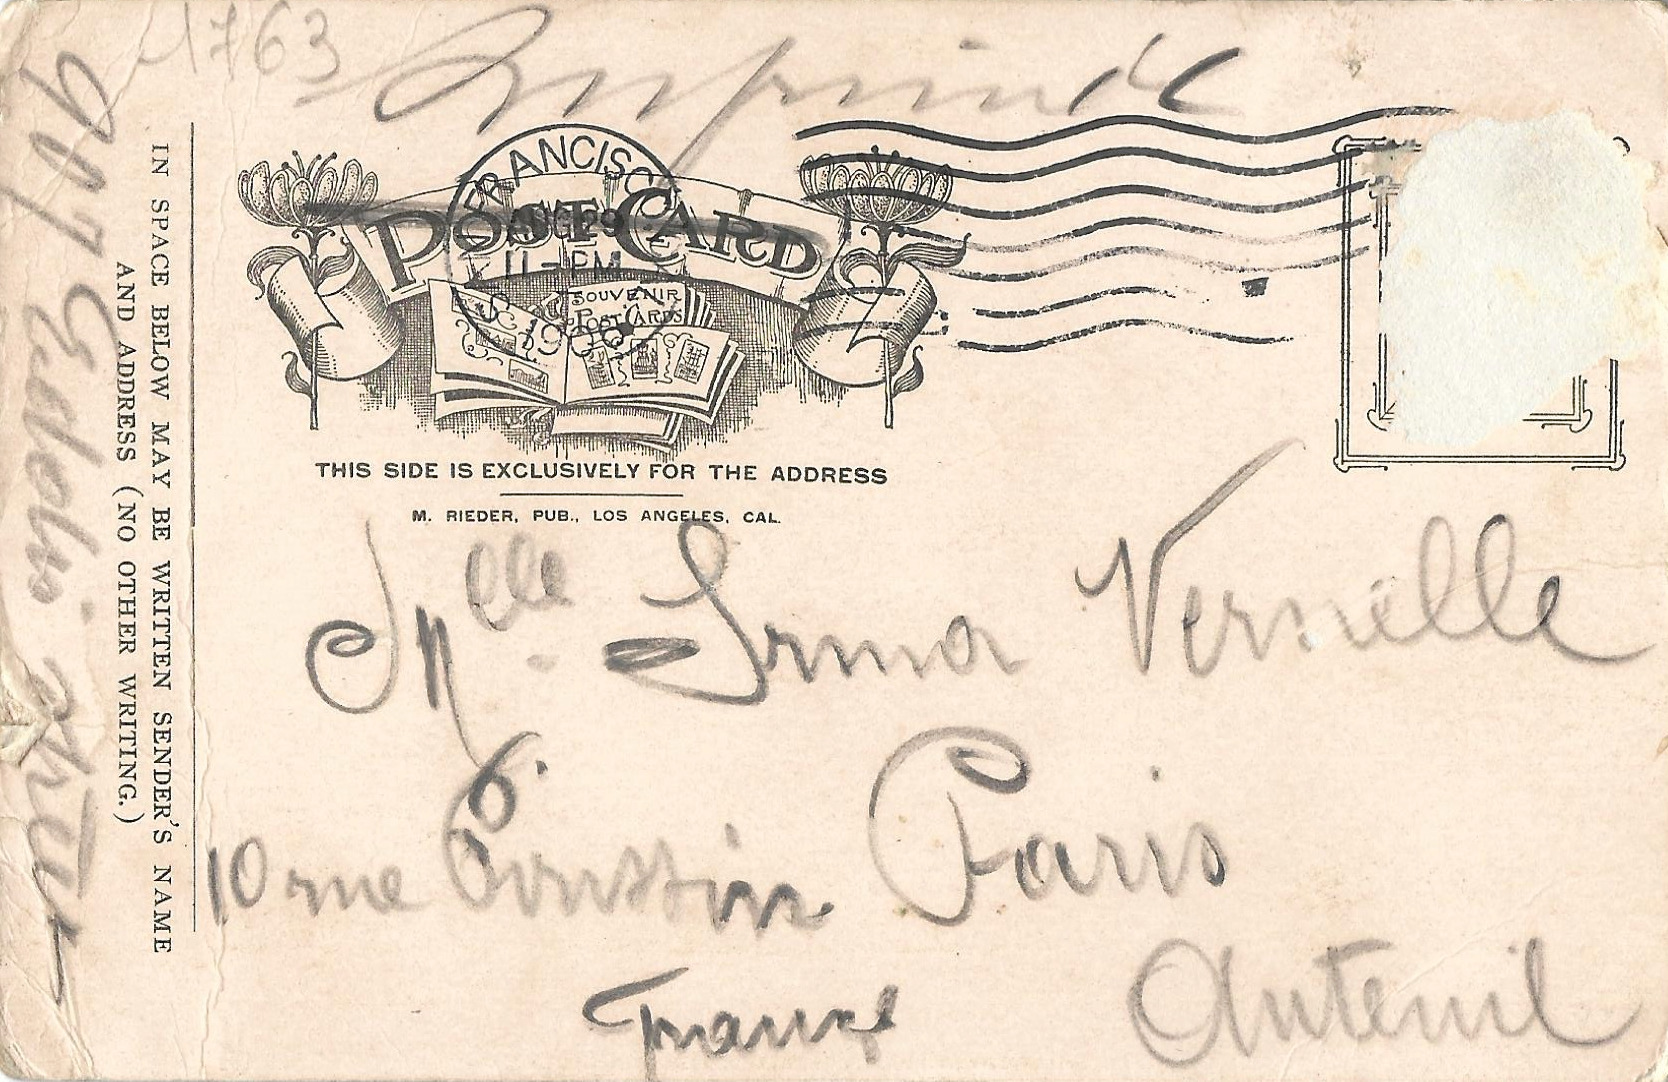 1763
Imprimé
FRANCISCO
AUG 29
11-PM
1906
POST CARD
SOUVENIR
POST CARDS
THIS SIDE IS EXCLUSIVELY FOR THE ADDRESS
M. RIEDER, PUB., LOS ANGELES, CAL.
Mlle Irma Vernelle
10 rue Poussin Paris
Auteuil
France
IN SPACE BELOW MAY BE WRITTEN SENDER'S NAME
AND ADDRESS (NO OTHER WRITING.)
907